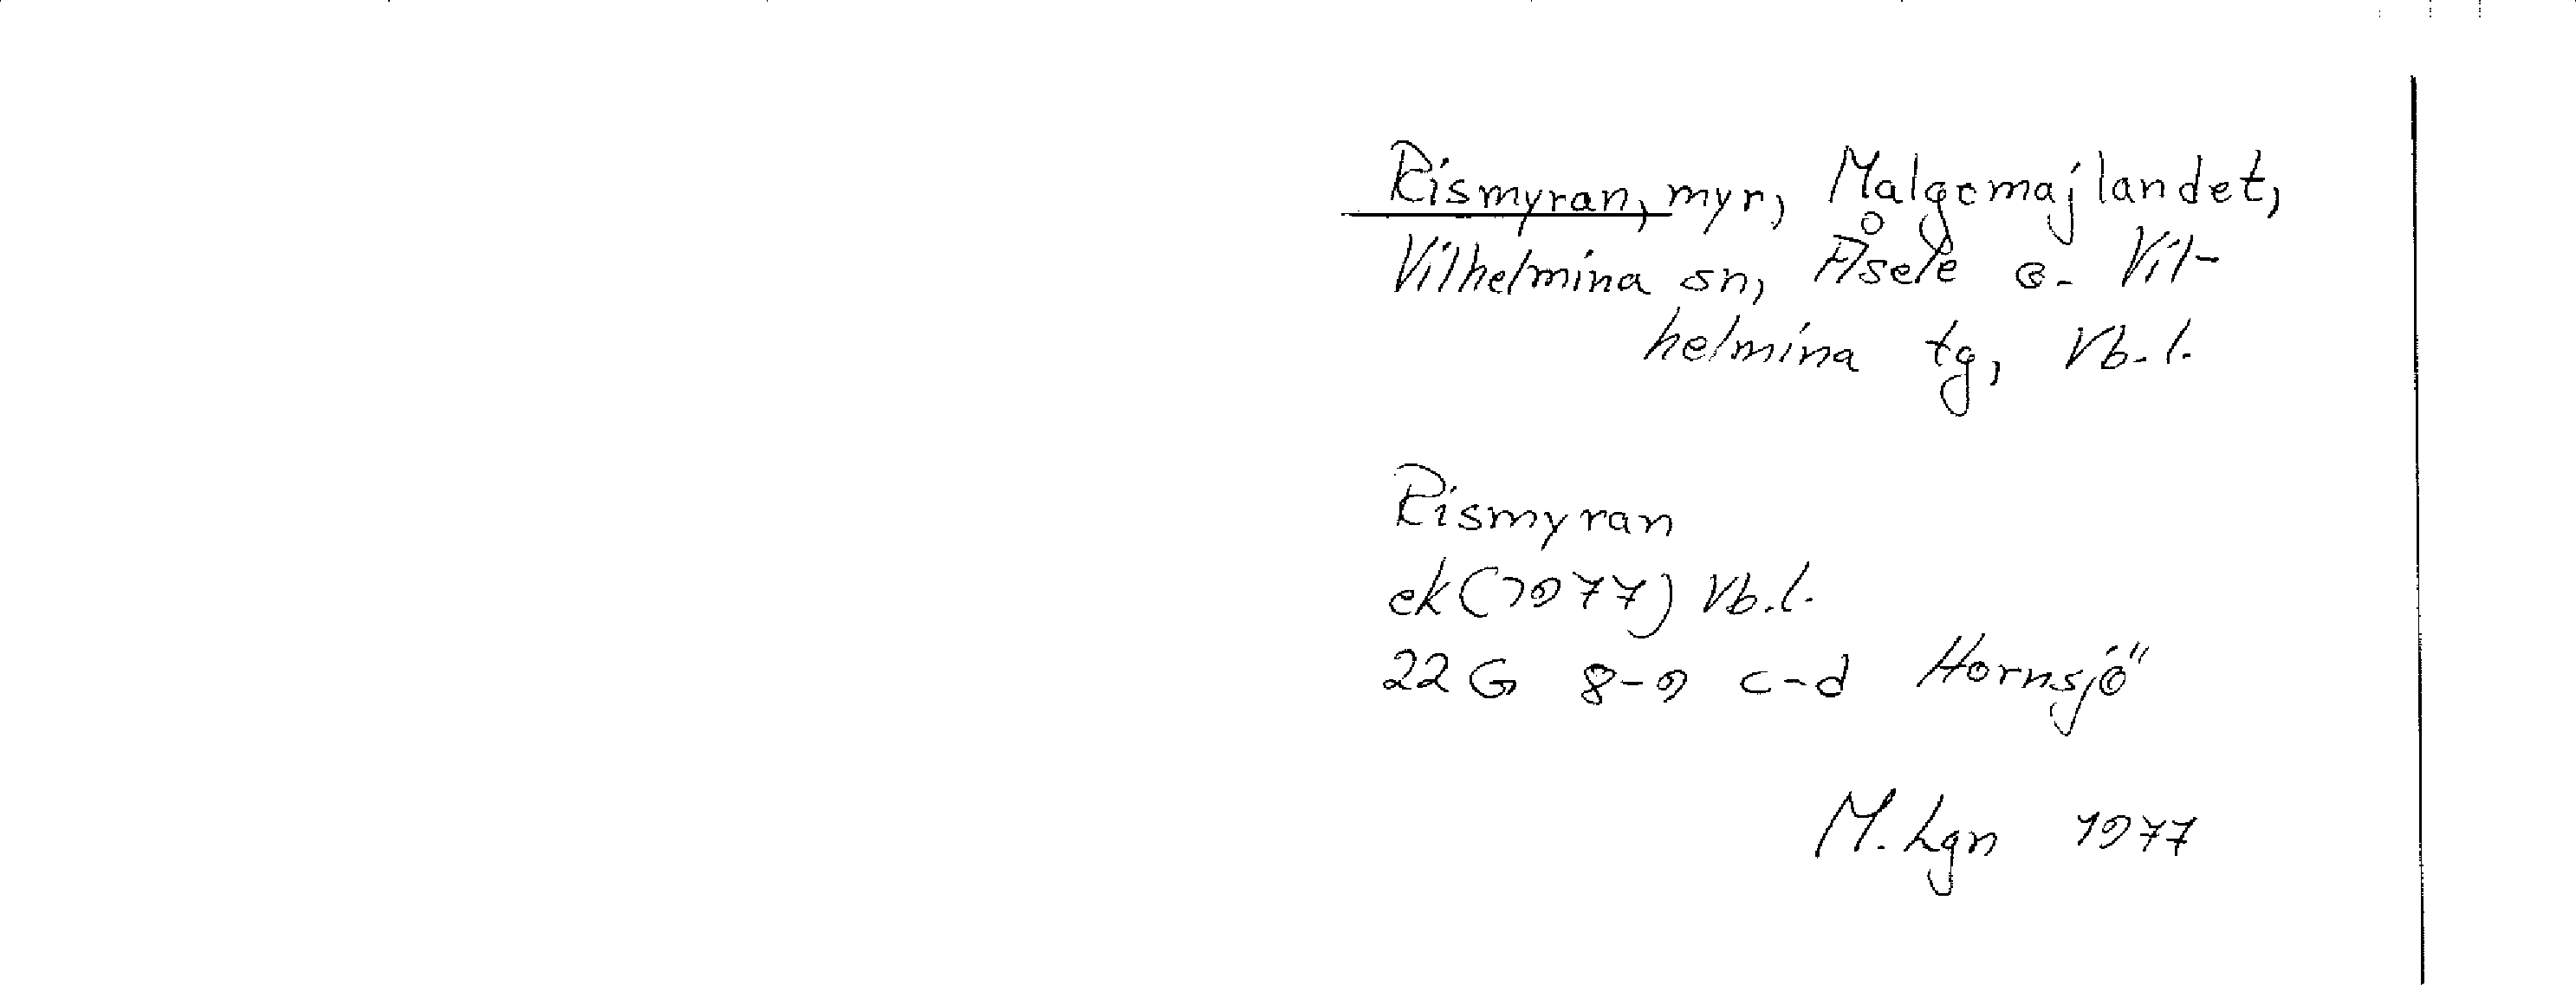 Rismyran, myr, Malgomajlandet,
Vilhelmina sn, Åsele o. Vil-
helmina tg, Vb. l.
Rismyran
ek (1977) Vb. l.
22 G 8-9 c-d Hornsjö
M. Lgn 1977